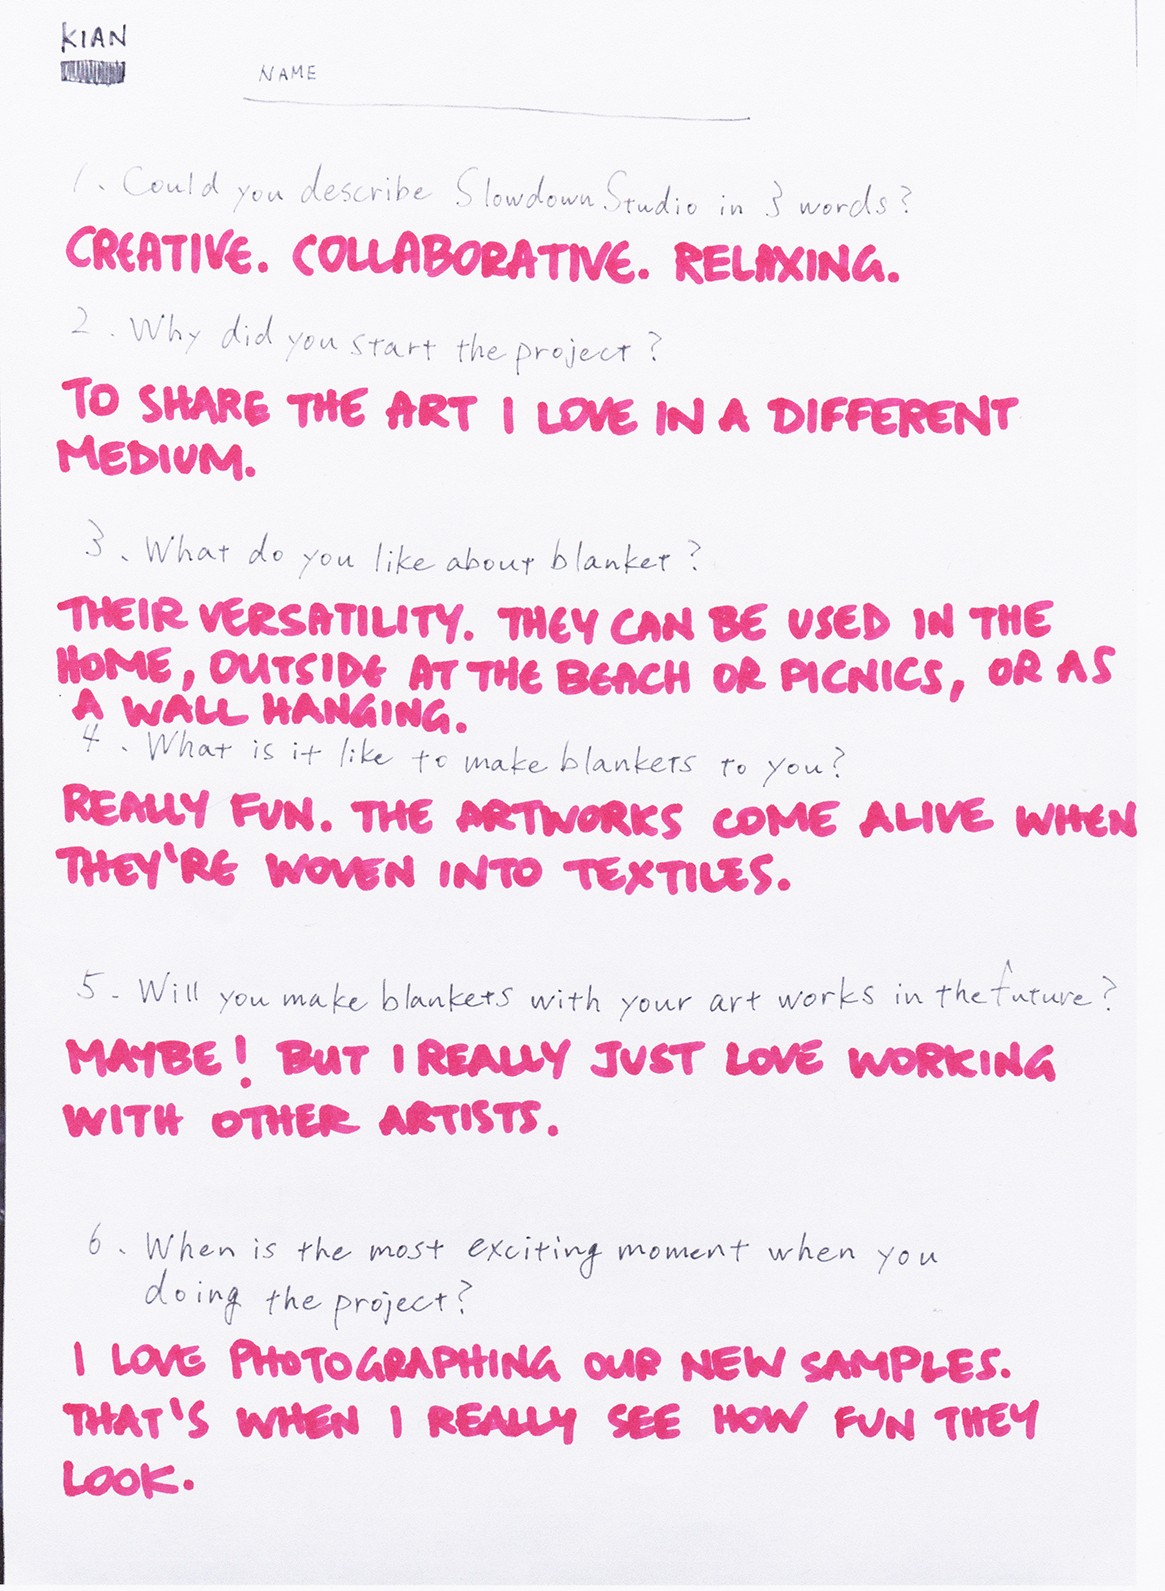 KIAN
NAME
1. Could you describe Slowdown Studio in 3 words?
CREATIVE. COLLABORATIVE. RELAXING.
2. Why did you start the project?
TO SHARE THE ART I LOVE IN A DIFFERENT
MEDIUM.
3. What do you like about blanket?
THEIR VERSATILITY. THEY CAN BE USED IN THE
HOME, OUTSIDE AT THE BEACH OR PICNICS, OR AS
A WALL HANGING.
4. What is it like to make blankets to you?
REALLY FUN. THE ARTWORKS COME ALIVE WHEN
THEY'RE WOVEN INTO TEXTILES.
5. Will you make blankets with your art works in the future?
MAYBE! BUT I REALLY JUST LOVE WORKING
WITH OTHER ARTISTS.
6. When is the most exciting moment when you
doing the project?
I LOVE PHOTOGRAPHING OUR NEW SAMPLES.
THAT'S WHEN I REALLY SEE HOW FUN THEY
LOOK.